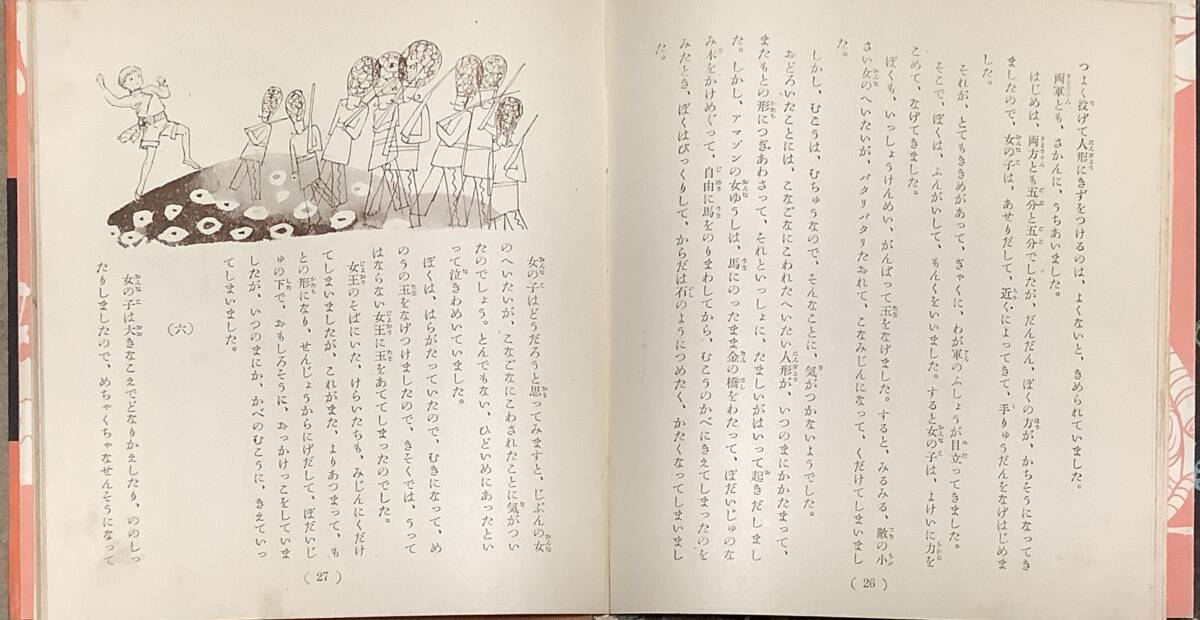 つよく投げて人形にきずをつけるのは、よくないと、きめられていました。
両軍とも、さかんに、うちあいました。
はじめは、両方とも五分と五分でしたが、だんだん、ぼくの方が、かちそうになってき
ましたので、女の子は、あせりだして、近くによってきて、手りゅうだんをなげはじめま
した。
それが、とてもききめがあって、ぎゃくに、わが軍のふしょうが目立ってきました。
そこで、ぼくは、ふんがいして、もんくをいいました。すると女の子は、よけいに力を
こめて、なげてきました。
ぼくも、いっしょうけんめい、がんばって玉をなげました。すると、みるみる、敵の小
さい女のへいたいが、バタリバタリたおれて、こなみじんになって、くだけてしまいまし
た。
しかし、むこうは、むちゅうなので、そんなことに、気がつかないようでした。
おどろいたことには、こなごなにこわれたへいたい人形が、いつのまにかかたまって、
またもとの形につぎあわさって、それといっしょに、たましいがはいって起きだしまし
た。しかし、アマゾンの女ゆうしは、馬にのったまま金の橋をわたって、ぼだいじゅのな
み木をかけめぐって、自由に馬をのりまわしてから、むこうのかべにきえてしまったのを
みたとき、ぼくはびっくりして、からだは石のようにつめたく、かたくなってしまいまし
た。
(26)
女の子はどうだろうと思ってみますと、じぶんの女
のへいたいが、こなごなにこわされたことに気がつい
たのでしょう。とんでもない、ひどいめにあったとい
って泣きわめいていました。
ぼくは、はらがたっていたので、むきになって、め
のうの玉をなげつけましたので、きそくでは、うって
はならない女王に玉をあててしまったのでした。
女王のそばにいた、けらいたちも、みじんにくだけ
てしまいましたが、これがまた、よりあつまって、も
との形になり、せんじょうからにげだして、ぼだいじ
ゅの下で、おもしろそうに、おっかけっこをしていま
したが、いつのまにか、かべのむこうに、きえていっ
てしまいました。
(六)
女の子は大きなこえでどなりかえしたり、ののしっ
たりしましたので、めちゃくちゃなせんそうになって
(27)